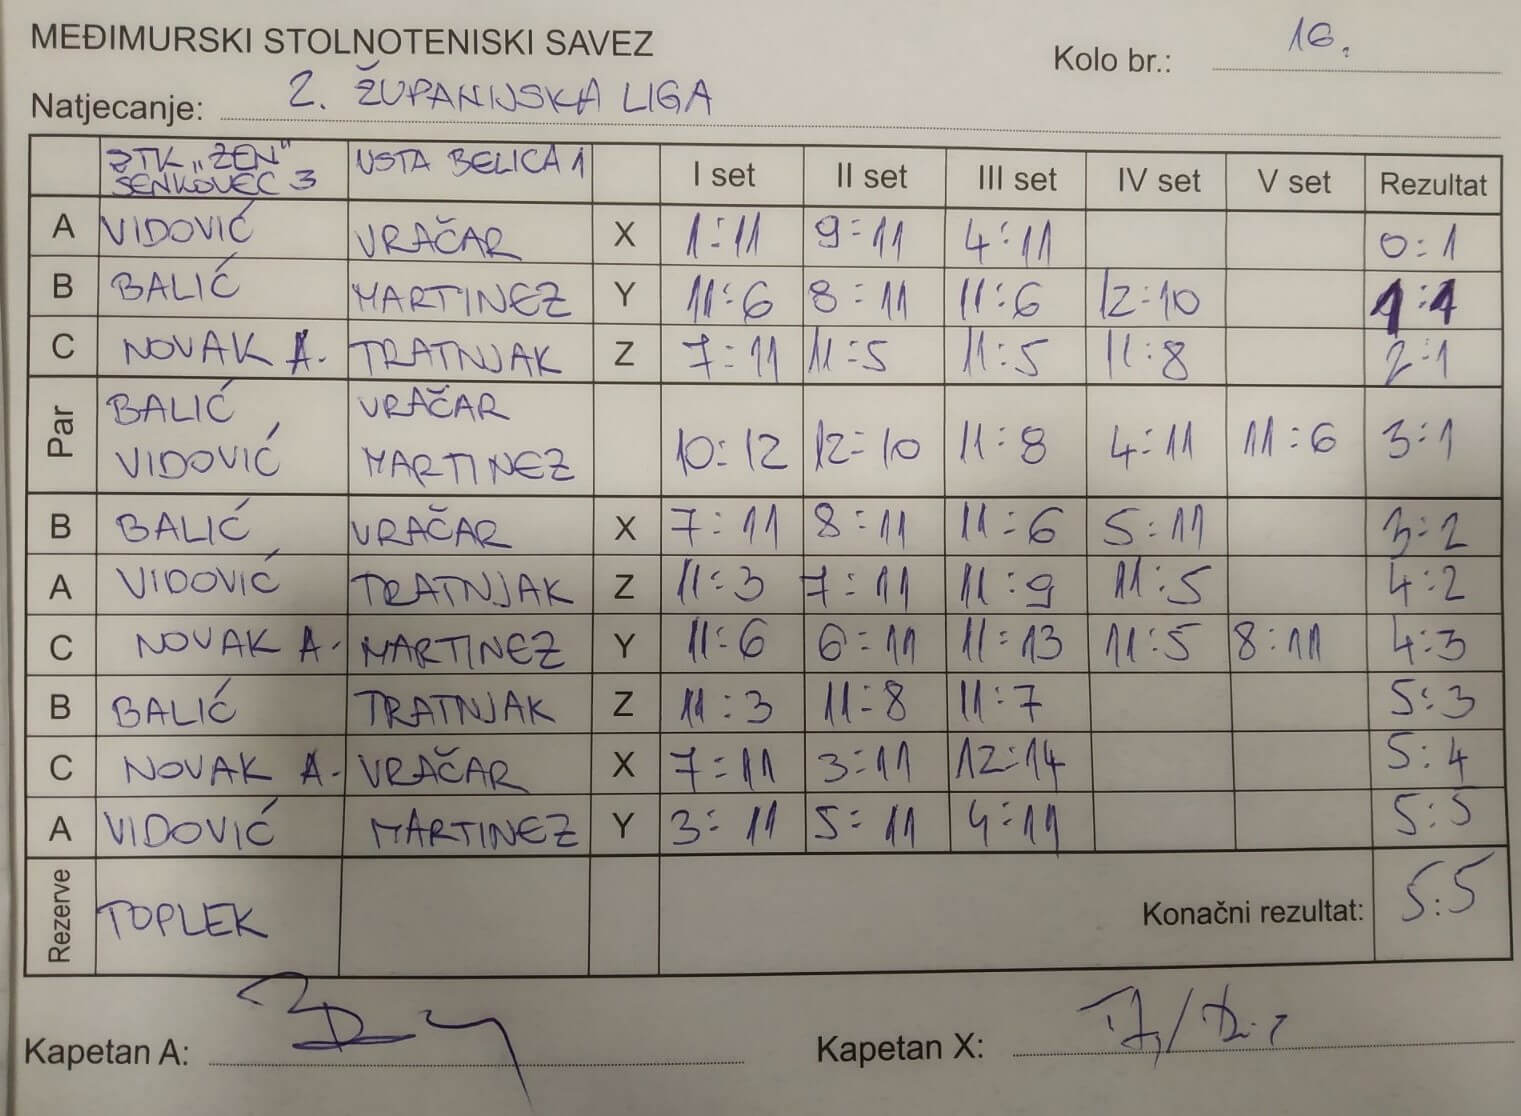 MEĐIMURSKI STOLNOTENISKI SAVEZ
Kolo br.: 16.
Natjecanje: 2. ŽUPANIJSKA LIGA
STK „ZEN" USTA BELICA 1 I set II set III set IV set V set Rezultat
ŠENKOVEC 3
A VIDOVIĆ VRAČAR X 1:11 9:11 4:11 0:1
B BALIĆ MARTINEZ Y 11:6 8:11 11:6 12:10 1:1
C NOVAK A. TRATNJAK Z 7:11 11:5 11:5 11:8 2:1
Par BALIĆ VRAČAR
VIDOVIĆ MARTINEZ 10:12 12:10 11:8 4:11 11:6 3:1
B BALIĆ VRAČAR X 7:11 8:11 11:6 5:11 3:2
A VIDOVIĆ TRATNJAK Z 11:3 7:11 11:9 11:5 4:2
C NOVAK A. MARTINEZ Y 11:6 6:11 11:13 11:5 8:11 4:3
B BALIĆ TRATNJAK Z 11:3 11:8 11:7 5:3
C NOVAK A. VRAČAR X 7:11 3:11 12:14 5:4
A VIDOVIĆ MARTINEZ Y 3:11 5:11 4:11 5:5
Rezerve TOPLEK Konačni rezultat: 5:5
Kapetan A: Kapetan X: